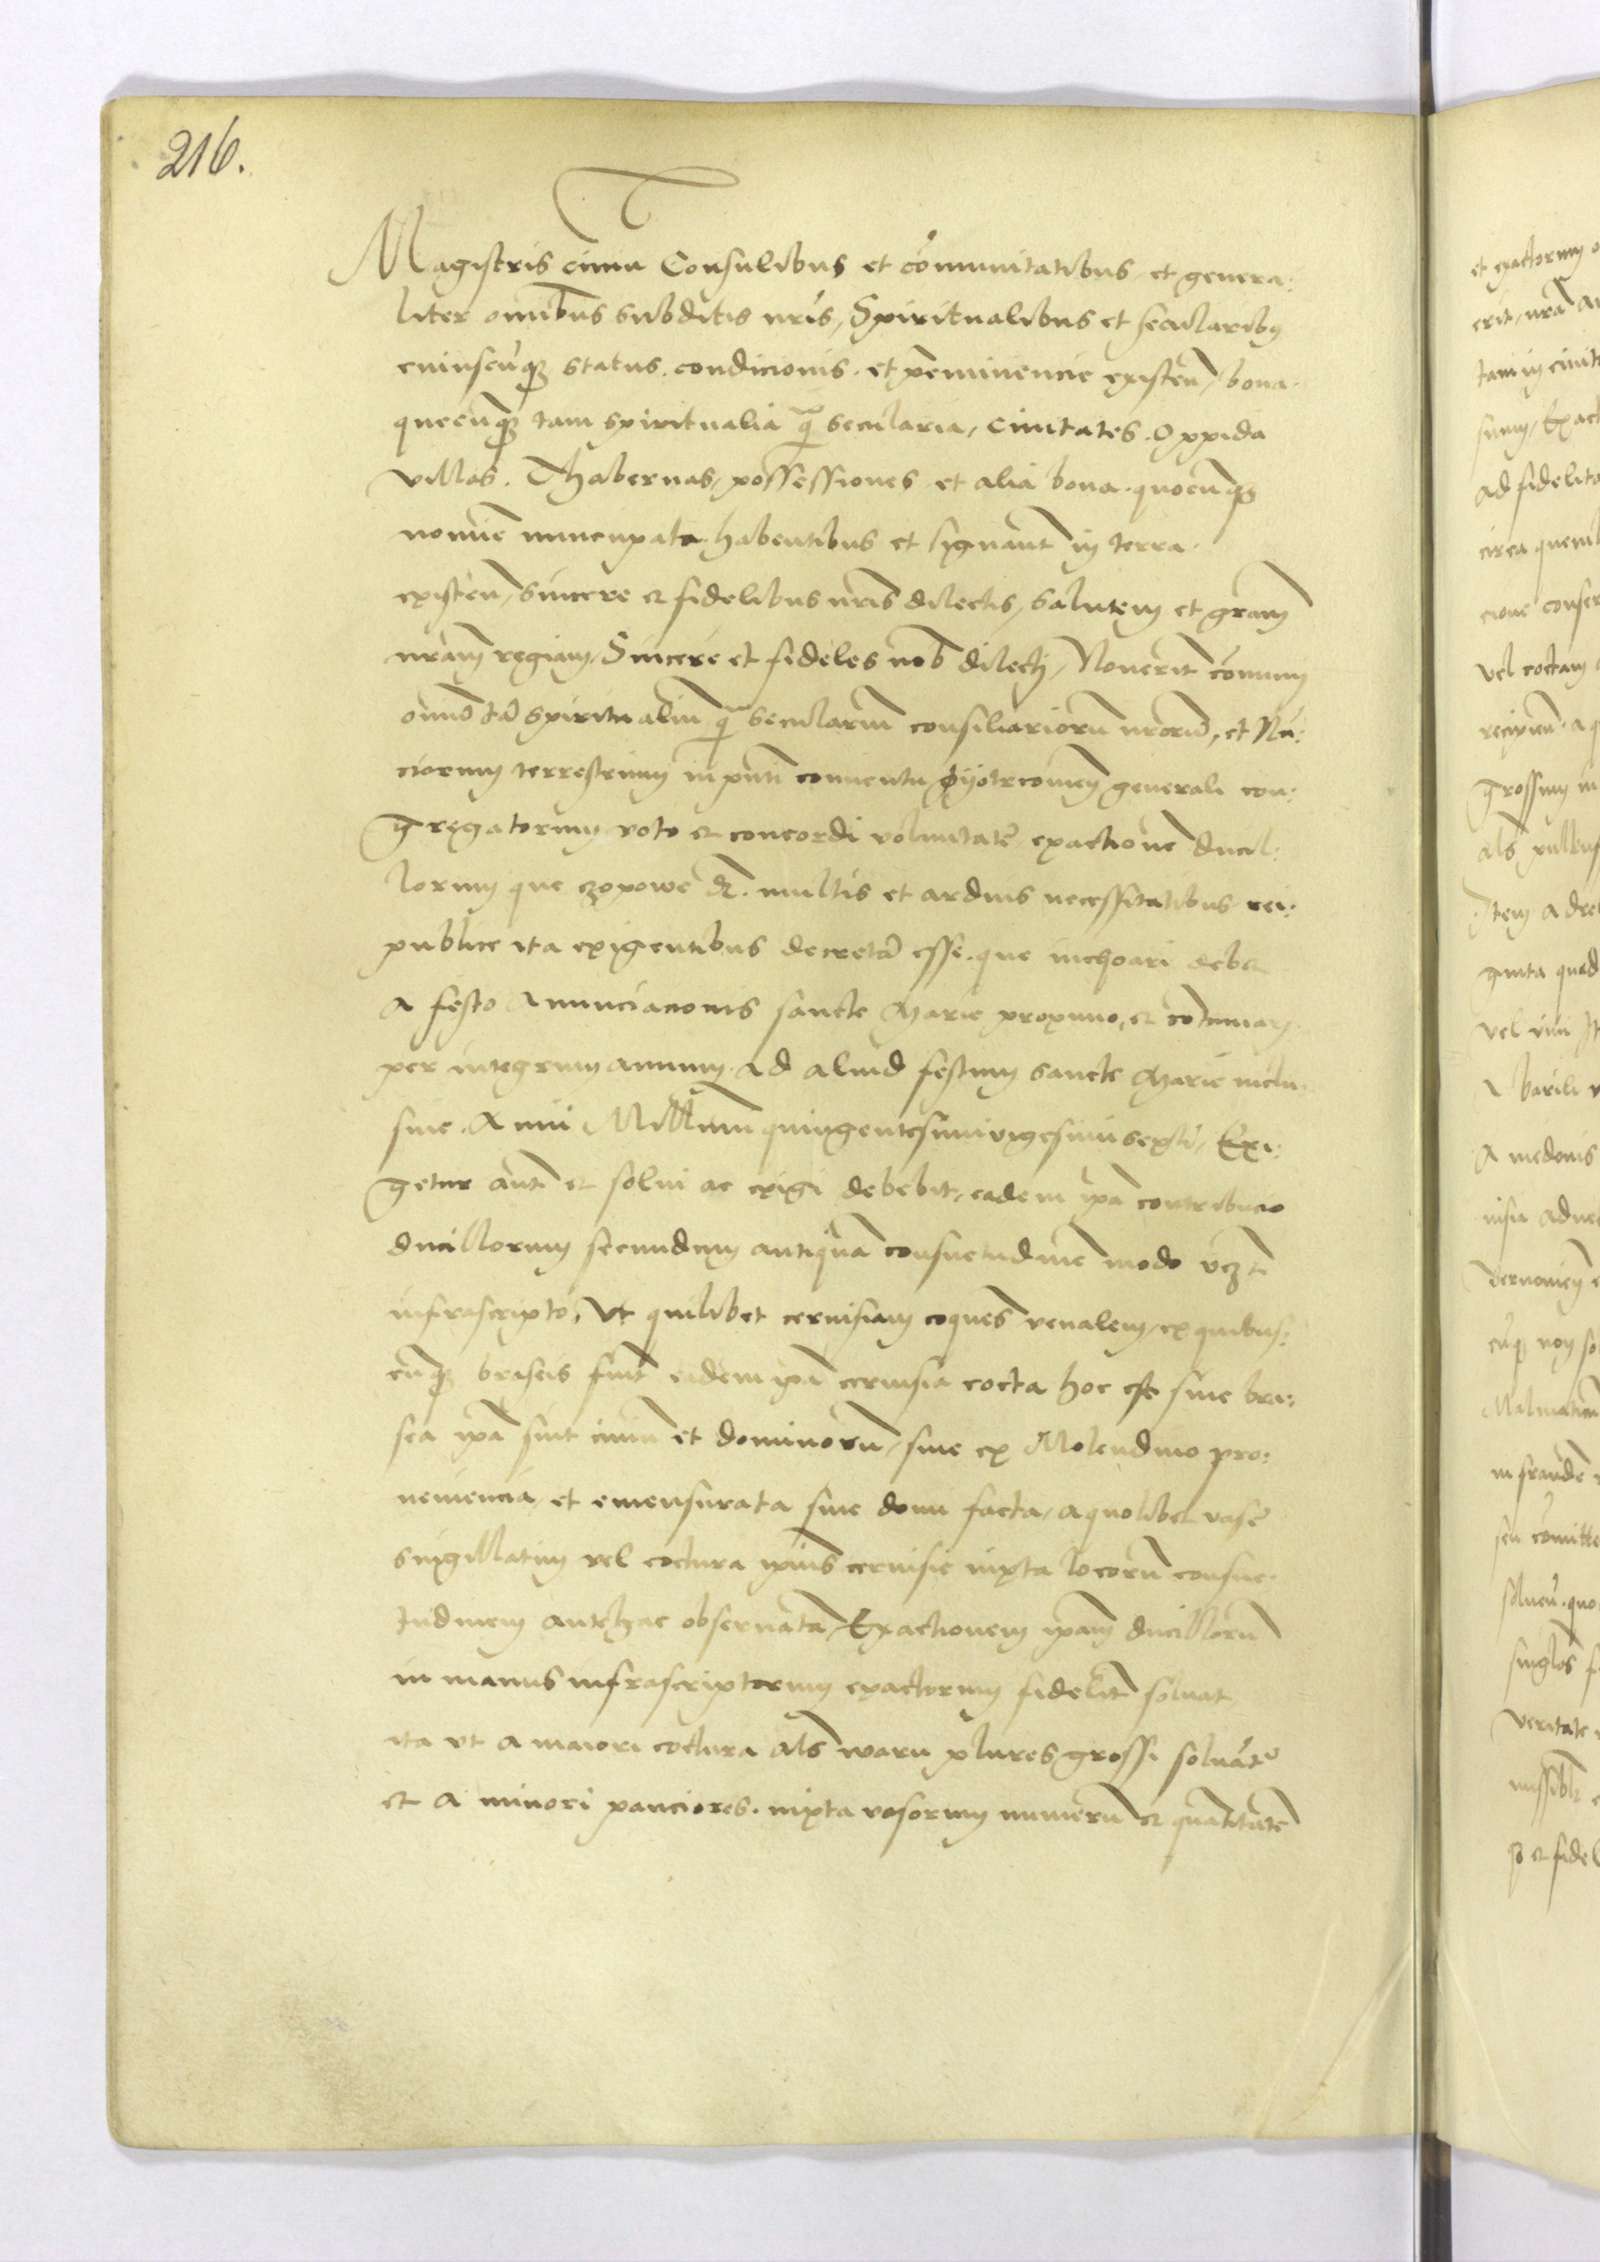 216.
Magistris civiū Consulibus et cōmunitatibus et genera:
liter omībus subditis nrīs, Spiritualibus et secularibus
cuiuscūqȝ status, condicionis et p̄eminencie existeñ, bona
quecūqȝ tam spiritualia q̄ secularia, Civitates Oppida
villas. Thabernas, possessiones et alia bona quocūqȝ
nomīe nuncupata habentibus et signant̄ in terra
existeñ, sincere et fidelibus nrīs dilectis, salutem et gratiam
nrām regiam. Sincere et fideles nob̄ dilecti, Noverit̄ cōmuni
omniū tā spiritualiū q̄ seculariū consiliariorū nrorū, et Nū:
ciorum terrestrium in pn̄ti conventu pyotrcovien̄ generali con:
gregatorum voto et concordi voluntate exactionē ducil:
lorum que czopowe dr̄. multis et arduis necessitatibus rei:
publice ita exigentibus decretā esse. que inchoari debet
a festo Annunciacionis sancte Marie proximo, et cōtinuari
per integrum annum ad aliud festum sancte Marie inclu:
sive Anni Millīmi quingentesimi vigesimi sexti, Exi:
getur autē et solui ac exigi debebit, eadem ipā contribucio
ducillorum secundum antiquā consuetudinē modo vcȝt
infrascripto, Vt quilibet cervisiam coqueñs venalem, ex quibus:
cūqȝ braseis fuit eidem ipā cervisia cocta hoc est sive bra:
sea ipā sint civiū et dominorū, sive ex Molendino pro:
veniencia, et emensurata sive domi facta, a quolibet vase
singillatim vel coctura ipīus cervisie iuxta locorū consue:
tudinem antehac observatā, Exactionem ipām ducillorū
in manus infrascriptorum exactorum fidelit̄ soluat
ita vt a maiori coctura als̄ waru plures grossi soluāt̄
et a minori pauciores. iuxta vasorum numerū et quātitatē